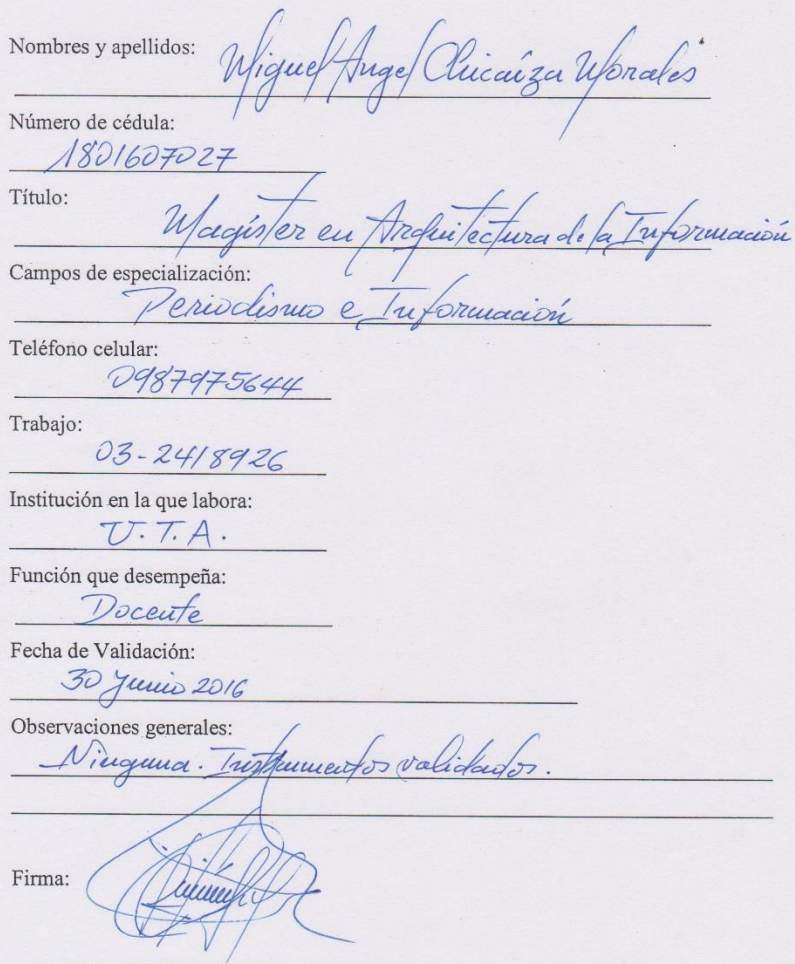 Nombres y apellidos:
Miguel Angel Chicaíza Morales
Número de cédula:
1801607027
Título:
Magíster en Arquitectura de la Información
Campos de especialización:
Periodismo e Información
Teléfono celular:
0987975644
Trabajo:
03-2418926
Institución en la que labora:
U.T.A.
Función que desempeña:
Docente
Fecha de Validación:
30 Junio 2016
Observaciones generales:
Ninguna. Instrumentos validados.
Firma: